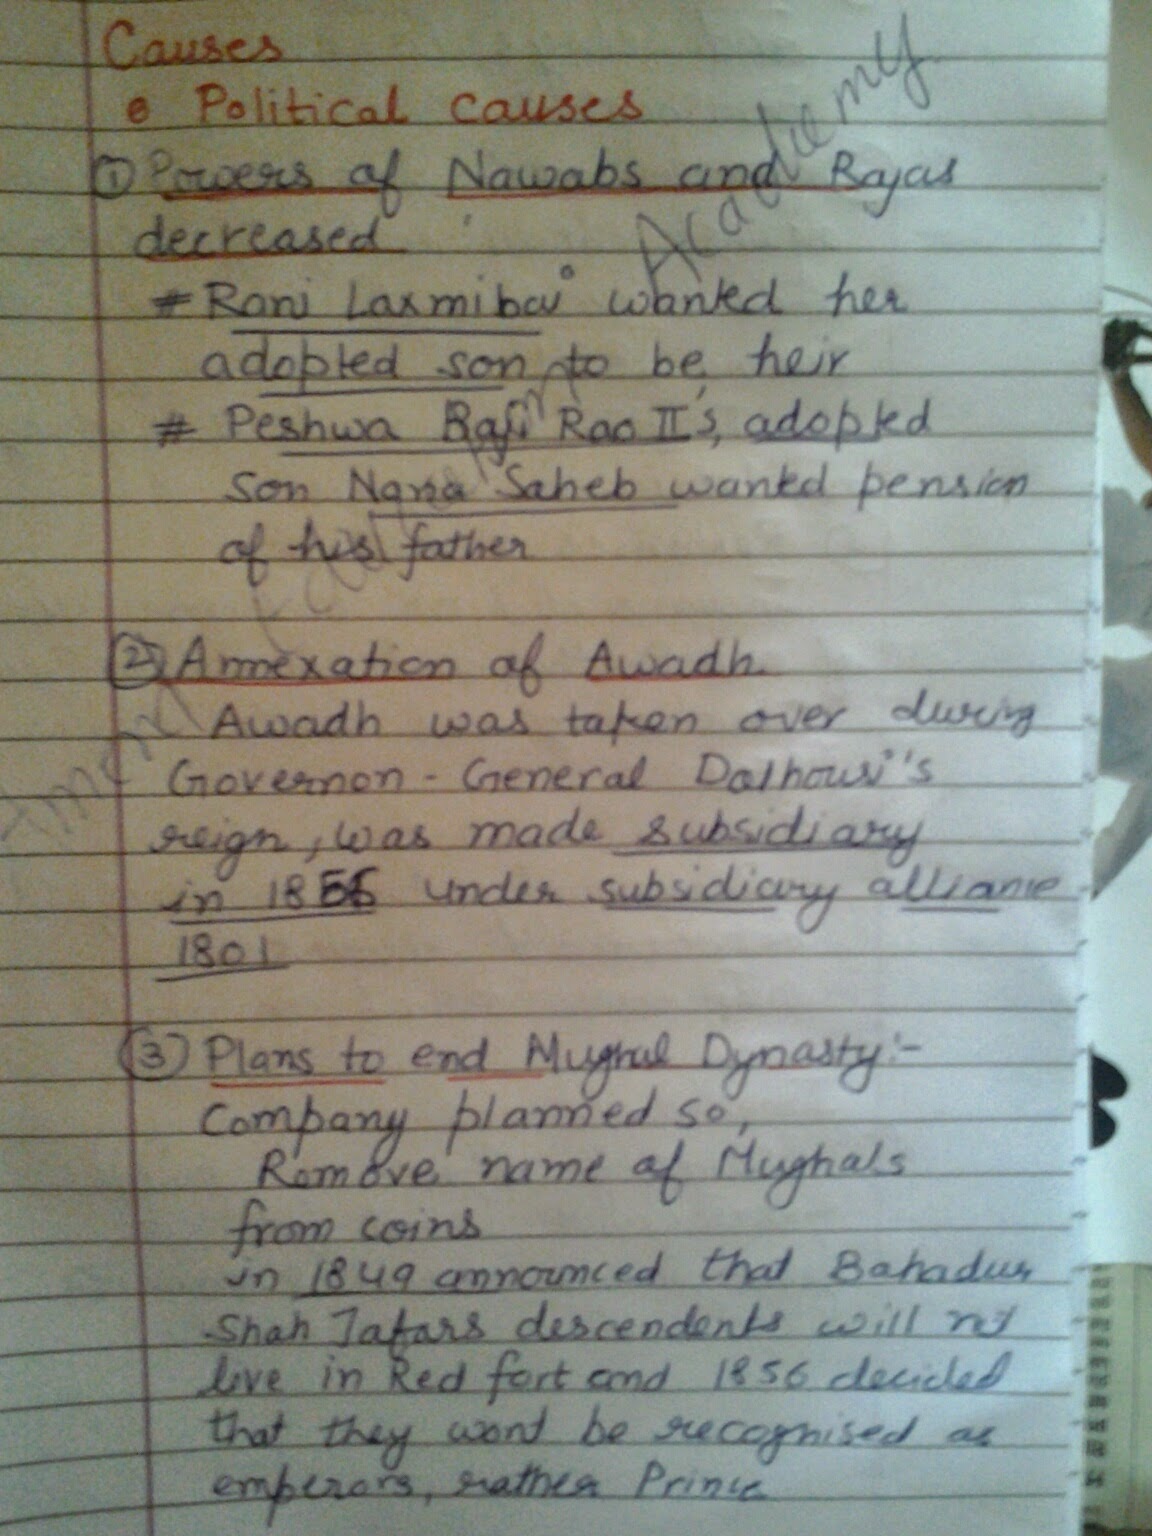 Causes
Political causes
① Powers of Nawabs and Rajas
decreased
# Rani Laxmibai wanted her
adopted son to be heir
# Peshwa Baji Rao II's, adopted
son Nana Saheb wanted pension
of his father
② Annexation of Awadh.
Awadh was taken over during
Governon - General Dalhousi's
reign, was made subsidiary
in 1856 under subsidiary alliance
1801
③ Plans to end Mughal Dynasty:-
Company planned so,
Remove name of Mughals
from coins
in 1849 announced that Bahadur
Shah Jafars descendents will not
live in Red fort and 1856 decided
that they wont be recognised as
emperors, rather Prince
Academy